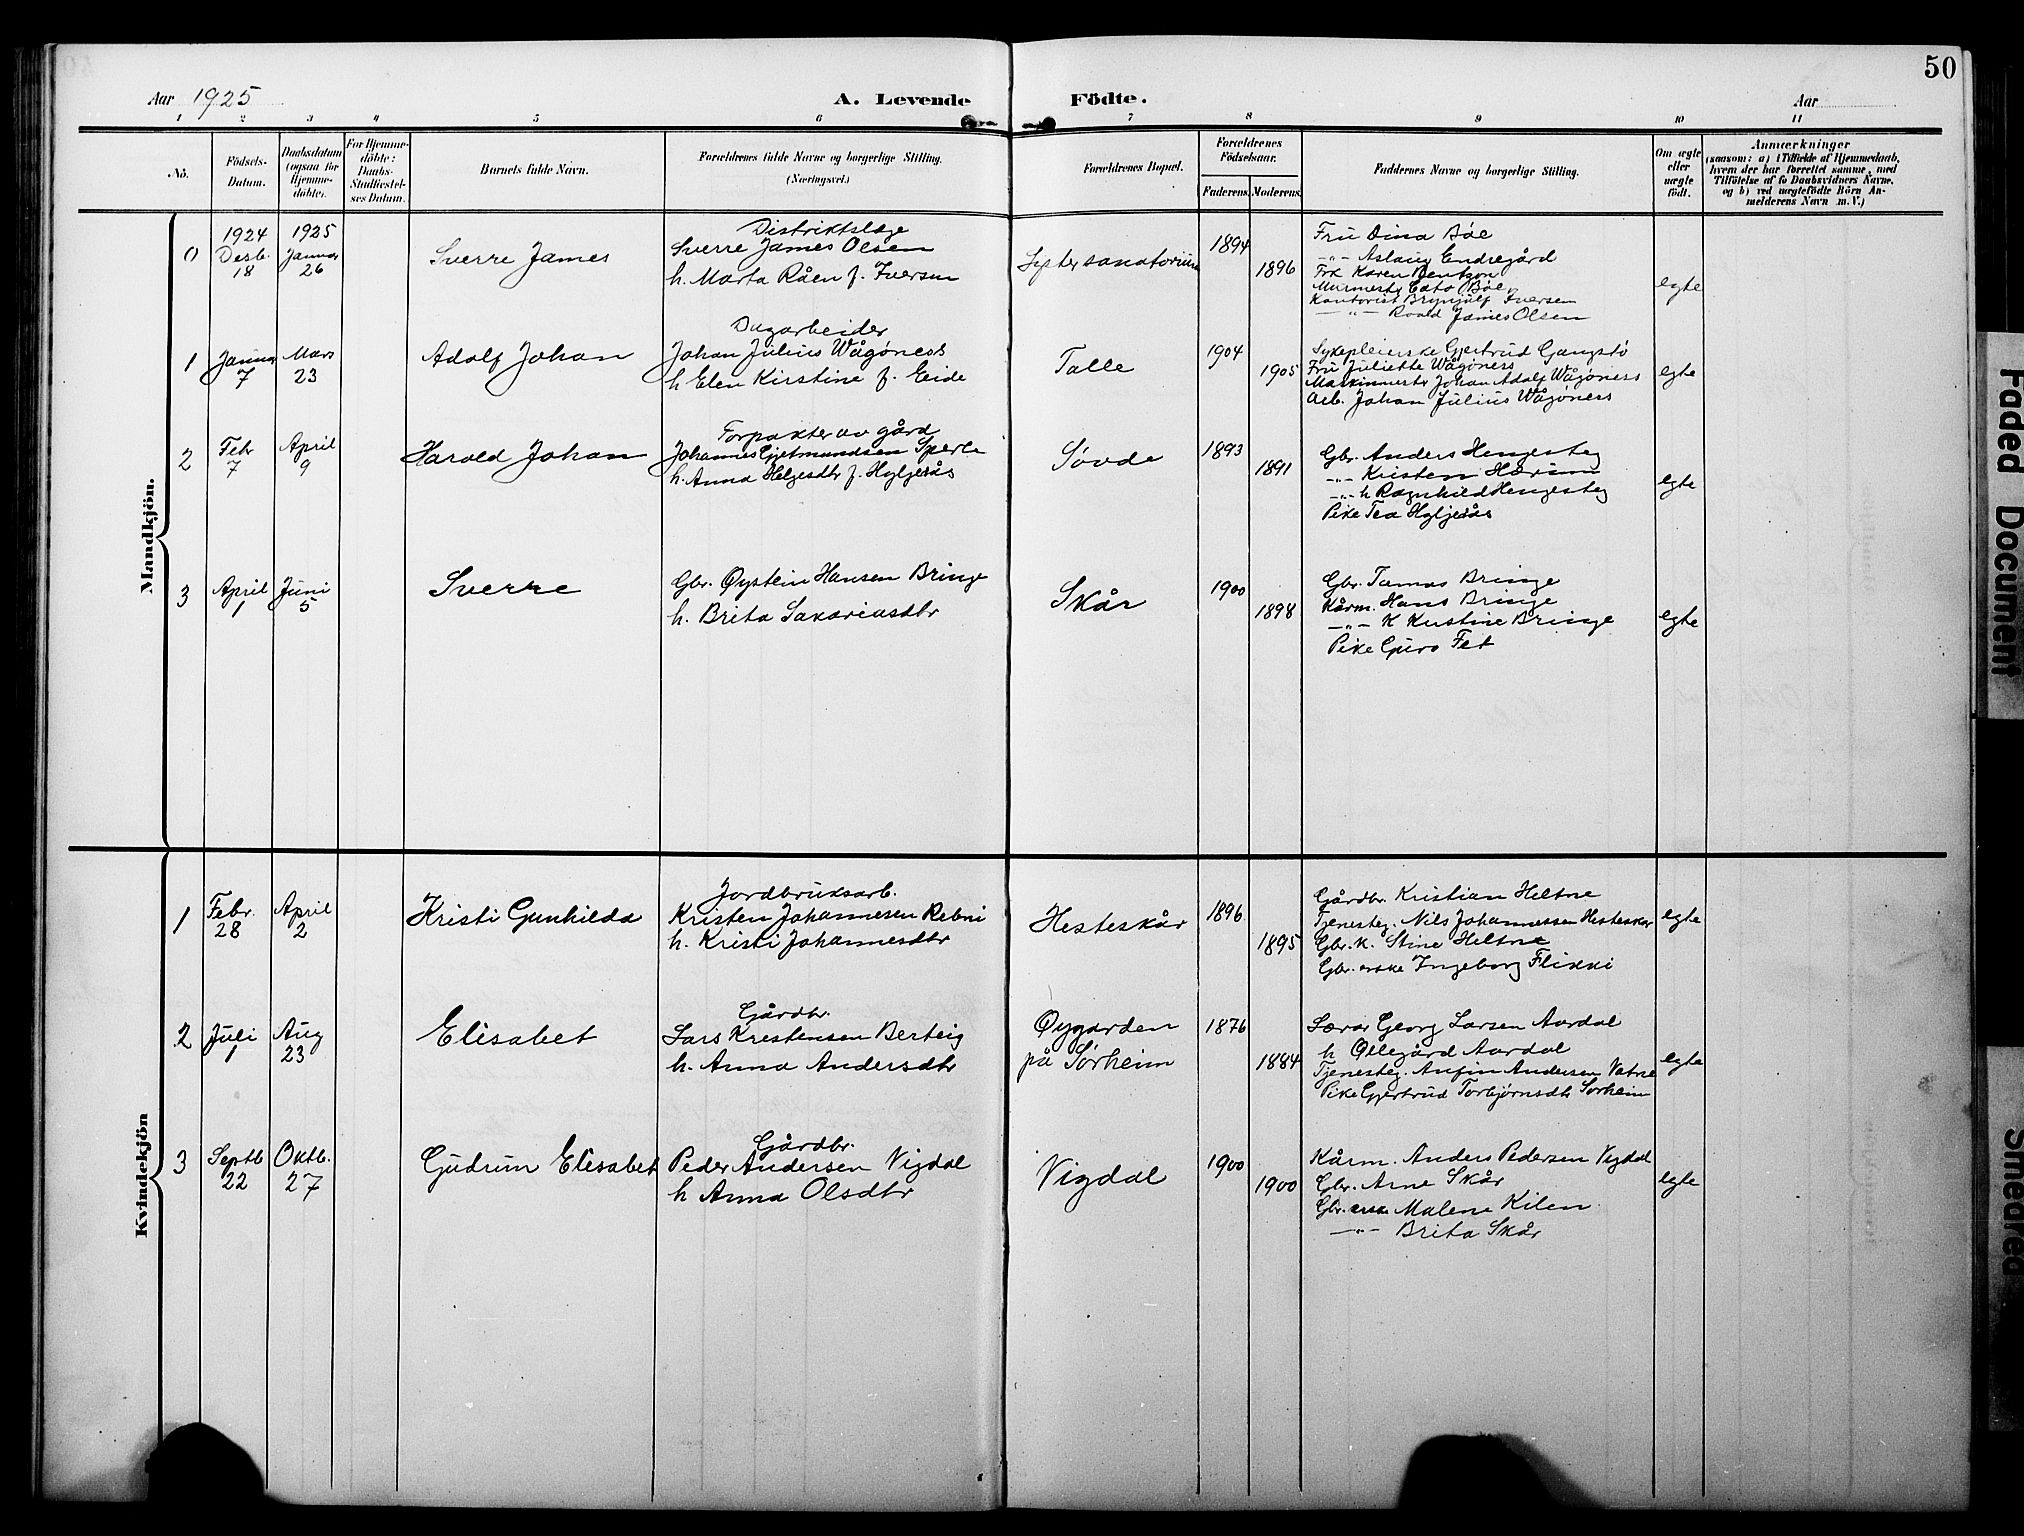 50
Aar 1925
A. Levende
Födte.
Aar
1 2 3 4 5 6 7 8 9 10 11
No.
Födsels-
Datum.
Daabsdatum
(ogsaa for
Hjemme-
döbte).
For Hjemme-
döbte:
Daabs-
Stadfæstel-
ses Datum.
Barnets fulde Navn.
Forældrenes fulde Navne og borgerlige Stilling.
(Næringsvei.)
Forældrenes Bopæl.
Forældrenes
Födselsaar.
Faderens. Moderens.
Faddernes Navne og borgerlige Stilling.
Om ægte
eller
uægte
födt.
Anmærkninger
(saasom: a) i Tilfælde af Hjemmedaab,
hvem der har forrettet samme, med
Tilföielse af to Daabsvidners Navne.
og b) ved uægtefödte Börn An-
melderens Navn m. V.)
Mandkjön.
0
1924
Desb.
18
1925
Januar
26
Sverre James
Distriktslæge
Sverre James Olsen
h. Marta Råen f. Iversen
Lyster sanatorium
1894
1896
Fru Dina Bøe
—"— Aslaug Endregård
Frk Karen Bentzon
Murmestr Cato Bøe
Kontorist Brynjulf Iversen
—"— Roald James Olsen
egte
1
Januar
7
Mars
23
Adolf Johan
Dagarbeider
Johan Julius Wågønes
h Elen Kirstine f. Eide
Talle
1904
1905
Sykepleierske Gjertrud Gangstø
Fru Juliette Wågøness
Maskinmestr Johan Adolf Wågøness
Arb. Johan Julius Wågøness
egte
2
Febr
7
April
9
Harold Johan
Forpakter av gård
Johannes Gjetmundsen Sperle
h. Anna Helgesdtr f. Hyljerås
Søvde
1893
1891
Gbr. Anders Hengesteg
—"— Kristen Hærum
—"— h Ragnhild Hengesteg
Pike Tea Hyljerås
egte
3
April
1
Juni
5
Sverre
Gbr. Øystein Hansen Bringe
h. Brita Sakariasdtr
Skår
1900
1898
Gbr. Tomas Bringe
Kårm. Hans Bringe
—"— K Kristine Bringe
Pike Guro Fet
egte
Kvindekjön
1
Febr.
28
April
2
Kristi Gunhilda
Jordbruksarb.
Kristen Johannesen Rebni
h. Kristi Johannesdtr
Hesteskår
1896
1895
Gårdbr. Kristian Heltne
Tjenesteg. Nils Johannessen Hesteskår
Gbr. k. Stine Heltne
Gbr. erske Ingeborg Flikki
egte
2
Juli
1
Aug
23
Elisabet
Gårdbr.
Lars Krestensen Berteig
h. Anna Andersdtr
Øygarden
på Sørheim
1876
1884
Lærar Georg Larsen Aardal
h Ollegård Aardal
Tjenesteg. Anfin Andersen Vatne
Pike Gjertrud Torbjørnsdtr Sørheim
egte
3
Septb
22
Oktb.
27
Gudrun Elisabet
Gårdbr.
Peder Andersen Vigdal
h Anna Olsdtr
Vigdal
1900
1900
Kårm. Anders Pedersen Vigdal
Gbr. Arne Skår
Gbr. erske Malene Kilen
—"— Brita Skår
egte
Faded Document
Smeared